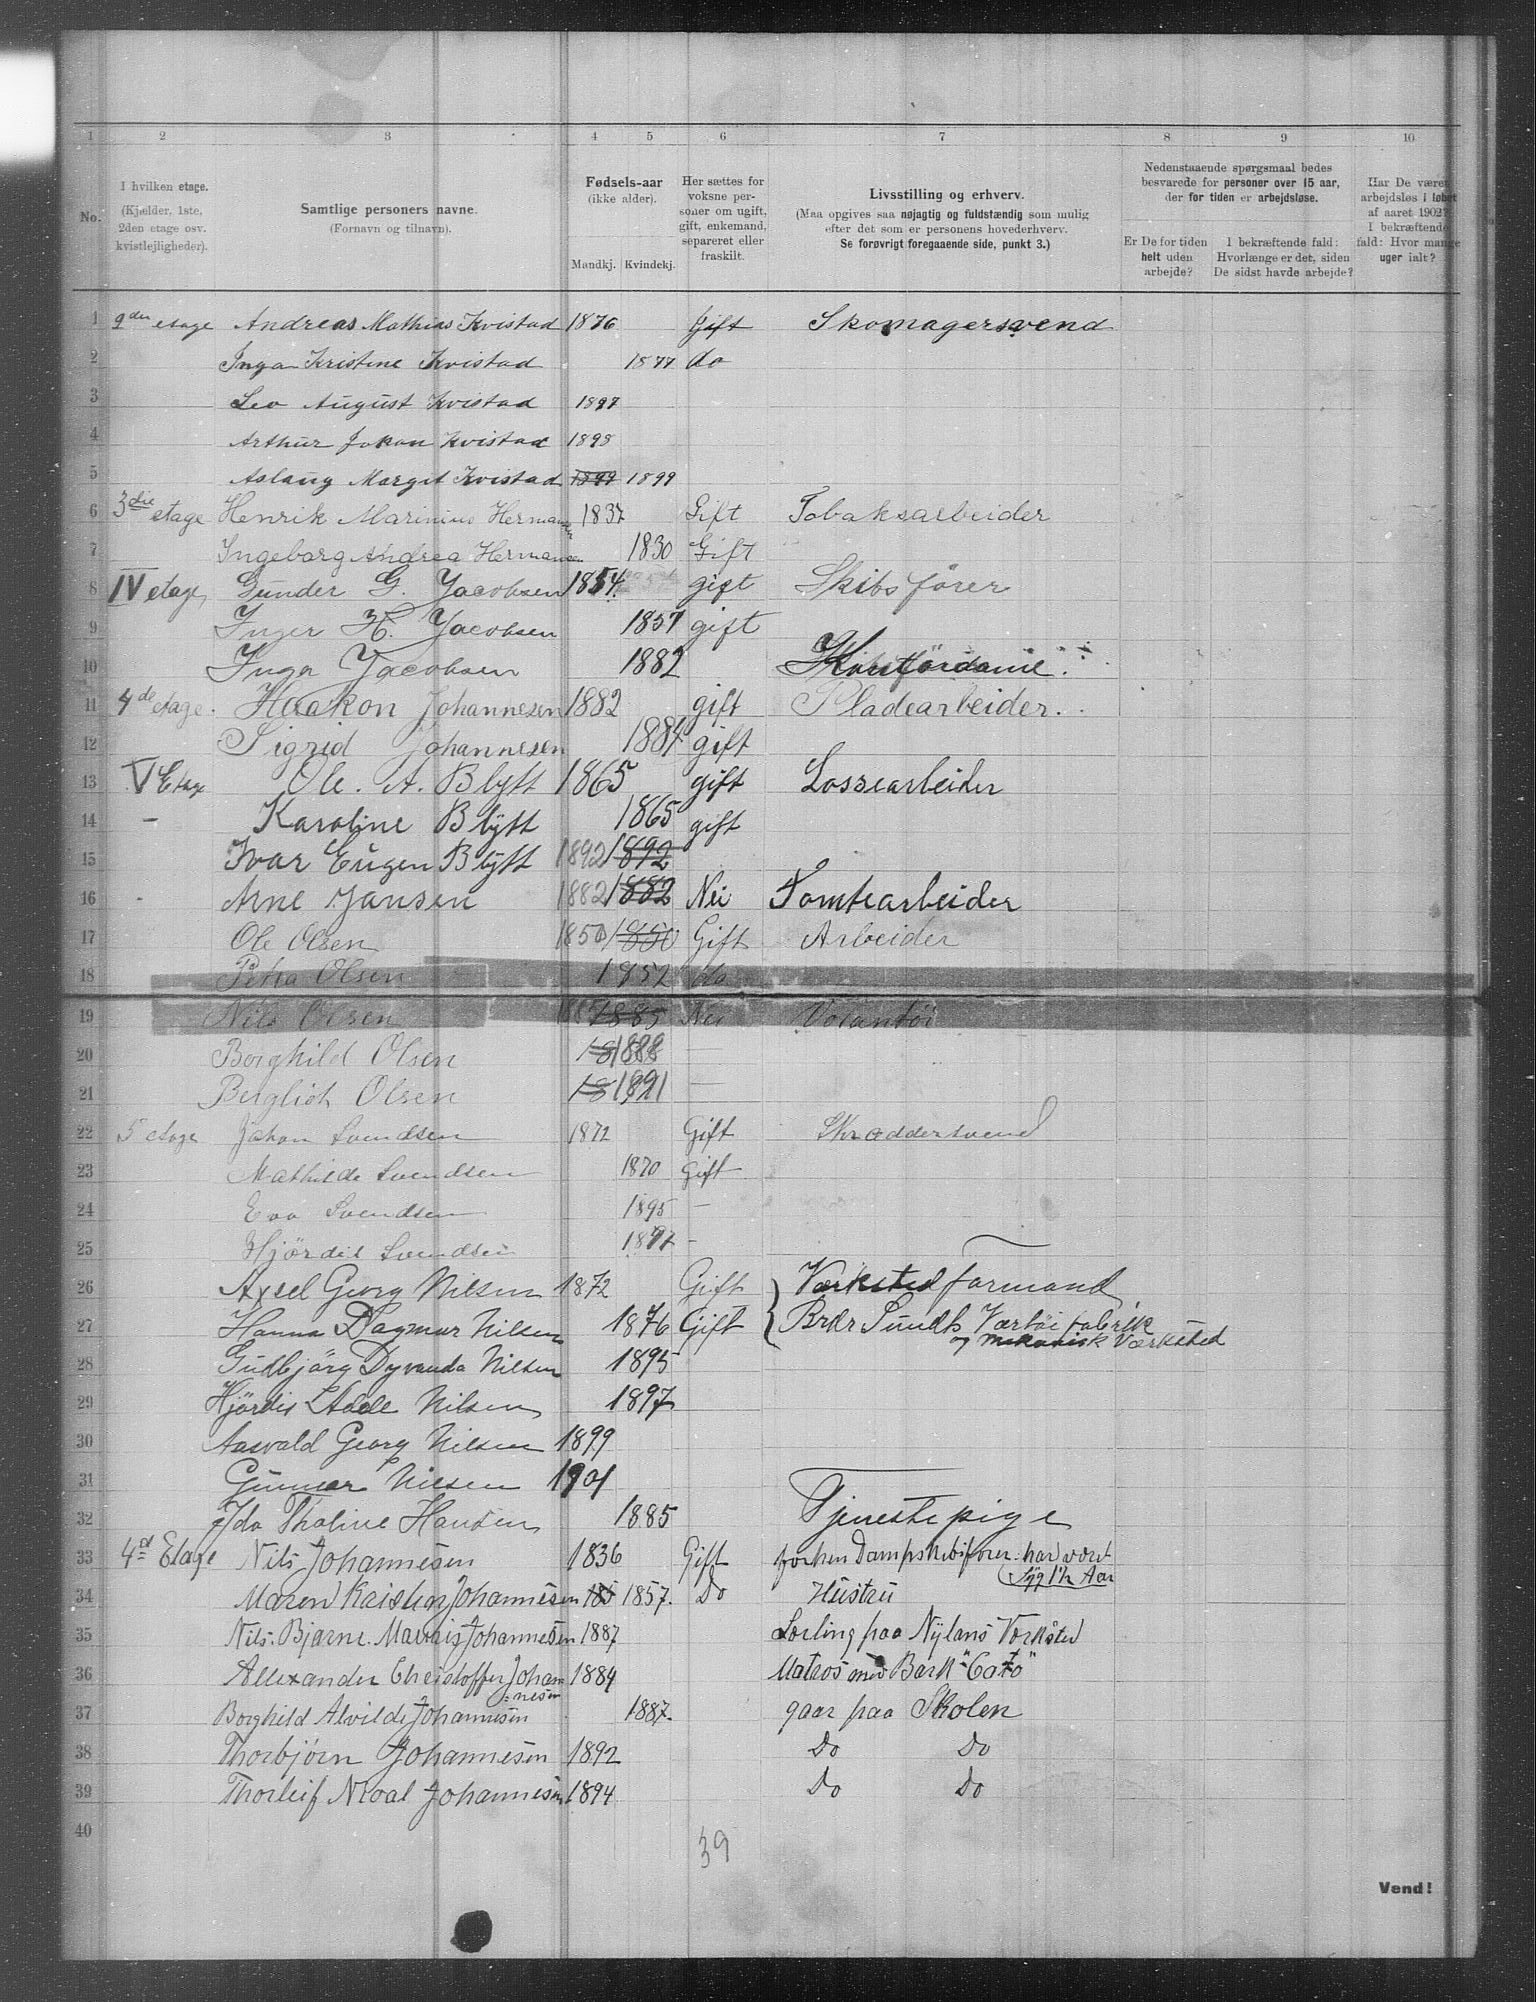 1 2 3 4 5 6 7 8 9 10
No.
I hvilken etage. (Kjælder, 1ste, 2den etage osv. kvistlejligheder).
Samtlige personers navne. (Fornavn og tilnavn).
Fødsels-aar (ikke alder). Mandkj. Kvindekj.
Her sættes for voksne personer om ugift, gift, enkemand, separeret eller fraskilt.
Livsstilling og erhverv. (Maa opgives saa nøjagtig og fuldstændig som mulig efter det som er personens hovederhverv. Se forøvrigt foregaaende side, punkt 3.)
Nedenstaaende spørgsmaal bedes besvarede for personer over 15 aar, der for tiden er arbejdsløse.
Er De for tiden helt uden arbejde?
I bekræftende fald: Hvorlænge er det, siden De sidst havde arbejde?
Har De været arbejdsløs i løbet af aaret 1902? I bekræftende fald: Hvor mange uger ialt?
1 2den etage Andreas Mathias Kvistad 1876 Gift Skomagersvend
2 Inga Kristine Kvistad 1877 do
3 Leo August Kvistad 1897
4 Arthur Johan Kvistad 1898
5 Aslaug Margit Kvistad 1899 1899
6 3die etage Henrik Marinius Hermansen 1837 Gift Tobaksarbeider
7 Ingeborg Andrea Hermansen 1830 Gift
8 IV etage Gunder G. Jacobsen 1854 gift Skibsfører
9 Inger H. Jacobsen 1857 gift
10 Inga Jacobsen 1882 Kontördame
11 4de etage. Haakon Johannesen 1882 gift Pladearbeider.
12 Sigrid Johannesen 1884 gift
13 V Etage Ole. A. Blytt 1865 gift Lossearbeider
14 - Karoline Blytt 1865 gift
15 Ivar Eugen Blytt 1892 1892
16 - Arne Jansen 1882 1882 Nei Tomtearbeider
17 Ole Olsen 1850 1850 Gift Arbeider
18 Petra Olsen 1852 do
19 Nils Olsen 1885 1885 Nei
20 Borghild Olsen 18 1888 -
21 Bergliot Olsen 18 1891 -
22 5 etage Johan Svendsen 1872 Gift Skræddersvend
23 Mathilde Svendsen 1870 Gift
24 Eva Svendsen 1895 -
25 Hjördis Svendsen 1897 -
26 Axsel Georg Nilsen 1872 Gift Værksted formand
27 Hanna Dagmar Nilsen 1876 Gift Brdr Sundts Værtöi fabrik
og mekanisk Værksted
28 Gudbjörg Nilsen 1895
29 Hjördis Adele Nilsen 1897
30 Aasvald Georg Nilsen 1899
31 Gunnar Nilsen 1901
32 Ida Thaline Hansen 1885 Tjenestepige
33 4de Etage Nils Johannesen 1836 Gift forhen Dampskibsfører. har været
syg 1½ Aar
34 Maren Johannesen 185 1857. Do Hustru
35 Nils. Bjarne. Johannesen 1887 Lærling paa Nylans Værksted
36 Allexander Christoffer Johannesen 1884 Matros med Bark "Cato"
37 Borghild Alvilde Johannesen 1887. gaar paa Skolen
38 Thorbjørn Johannesen 1892 Do Do
39 Thorleif Johannesen 1894 Do Do
40
39
Vend!